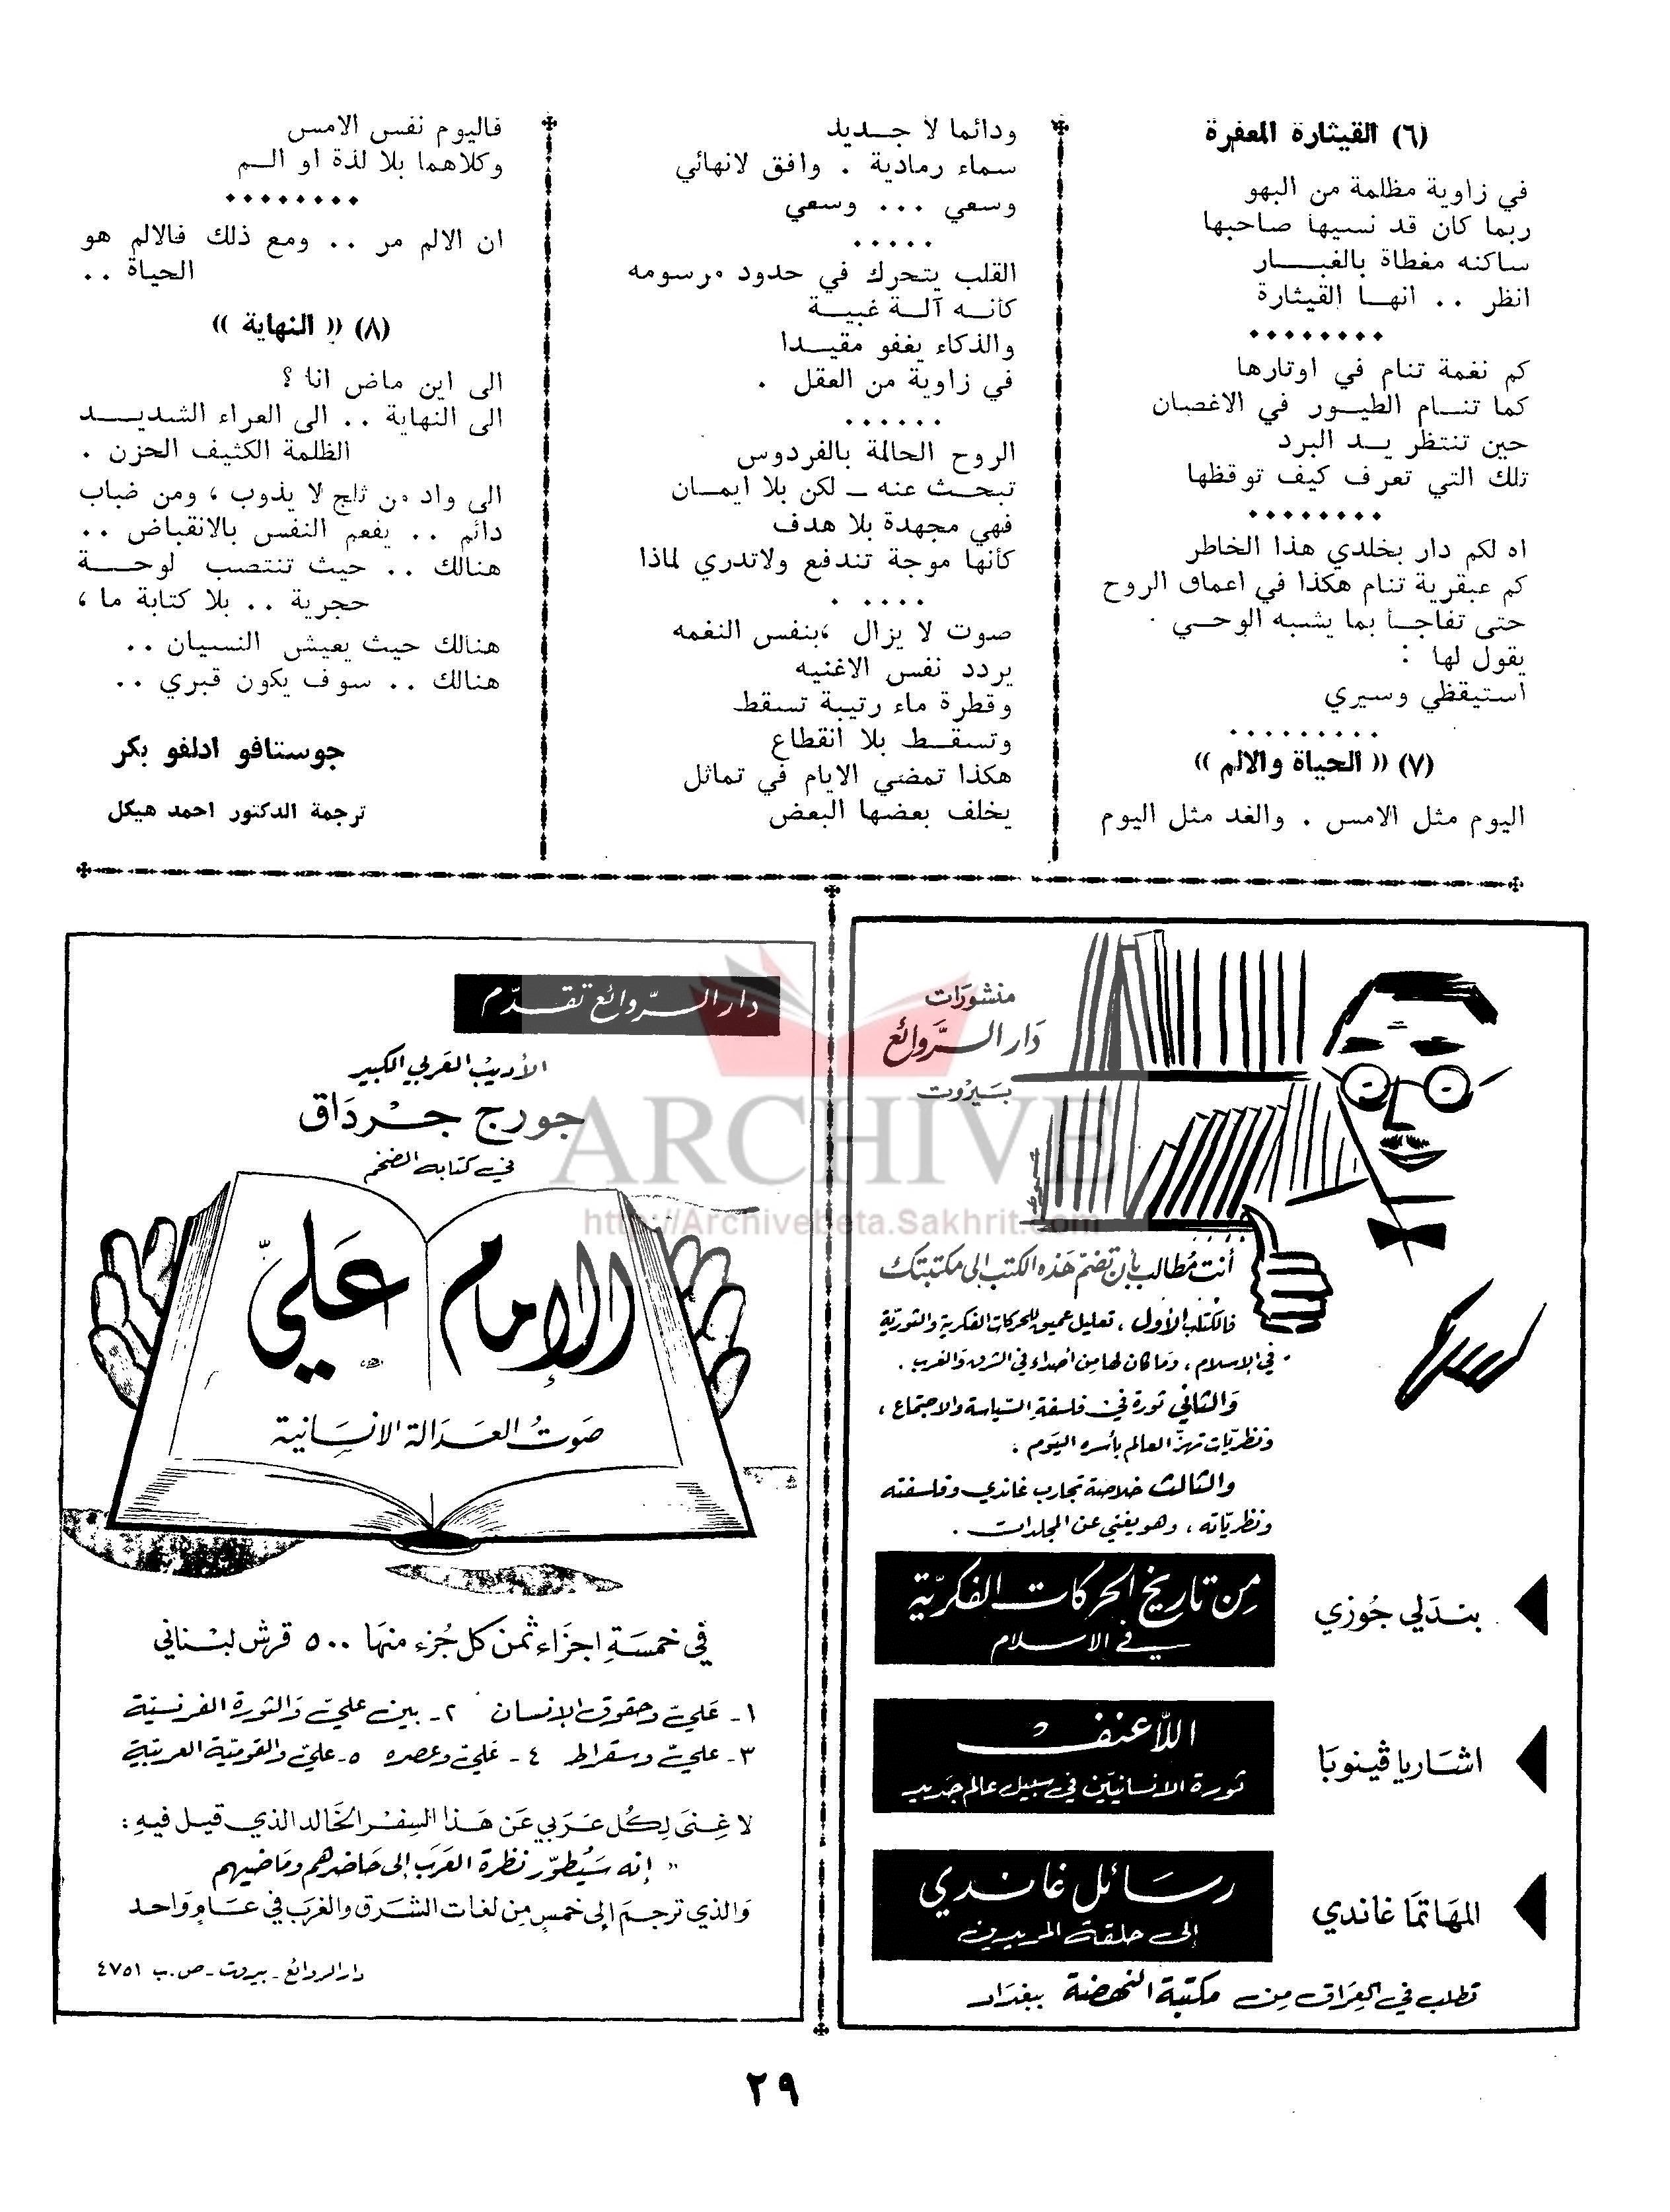 (٦) القيثارة المعفرة
في زاوية مظلمة من البهو
ربما كان قد نسيها صاحبها
ساكنه مغطاة بالغبـــار
انظر .. انهـا القيثارة
........
كم نغمة تنام في اوتارها
كما تنـام الطيـور في الاغصان
حين تنتظر يـد البرد
تلك التي تعرف كيف توقظها
........
اه لكم دار بخلدي هذا الخاطر
كم عبقرية تنام هكذا في اعماق الروح
حتى تفاجـأ بما يشبه الوحـي .
يقول لها :
استيقظي وسيري
.........
(٧) « الحياة والالم »
اليوم مثل الامس . والغد مثل اليوم
ودائما لا جـديد
سماء رمادية . وافق لانهائي
وسعي ... وسعي
.....
القلب يتحرك في حدود مرسومه
كأنـه آلـة غبيـة
والذكاء يغفو مقيـدا
في زاوية من العقل .
......
الروح الحالمة بالفردوس
تبحـث عنه ــ لكن بلا ايمـان
فهي مجهدة بلا هدف
كأنها موجة تندفع ولاتدري لماذا
.....
صوت لا يزال ،بنفس النغمه
يردد نفس الاغنيه
وقطرة ماء رتيبة تسقط
وتسقـط بلا انقطاع
هكذا تمضي الايام في تماثل
يخلف بعضها البعض
فاليوم نفس الامس
وكلاهما بلا لذة او الـم
........
ان الالم مر .. ومع ذلك فالالم هو
الحياة ..
(٨) « النهاية »
الى اين ماض انا ؟
الى النهاية .. الى العراء الشديـــد
الظلمة الكثيف الحزن .
الى واد من ثلج لا يذوب ، ومن ضباب
دائم .. يفعم النفس بالانقباض ..
هنالك .. حيث تنتصب لوحـــة
حجرية .. بلا كتابة ما ،
هنالك حيث يعيش النسيان ..
هنالك .. سوف يكون قبري ..
جوستافو ادلفو بكر
ترجمة الدكتور احمد هيكل
منشورات
دَار السرَّوائع
بَيروت
أنت مُطالب بأن تضمّ هَذه الكتب إلى مكتبتك
فالكتاب الأول ، تعليل عميق للحركات الفكرية والثوريّة
في الإسلام ، وما كان لها من أصداء في الشرق والغرب .
والثاني ثورة في فلسفة السّياسة والاجتماع ،
ونظريّات تهزّ العالم بأسره اليَوم .
والثالث خلاصة تجارب غاندي وفلسفته
ونظريّاته ، وهو يغني عن المجلدات .
بندَلي جُوزي
مِن تاريخ الحركات الفكريّة
في الاسلام
اشَاريا ڤينوبَا
اللاّعنف
ثورة الانسانيّين في سبيل عالم جَديد
المهَاتمَا غاندي
رسَائل غاندي
إلى حلقة المريدين
تطلب في العِرَاق مِن مكتبة النهضة ببغدَاد
دار السرَّوائع تقدّم
الأديبُ العَربي الكبير
جورج جرْدَاق
في كتابه الضخم
الإمام عَليّ
صَوتُ العَدالة الانسَانية
في خمسَةِ اجزَاء ثمن كل جُزء منهَا ٥٠٠ قرش لبْناني
١- عَليّ وحقوق الإنسان ٢- بين عليّ وَالثورة الفرنسيّة
٣- عليّ وسقراط ٤- عَليّ وعصره ٥- عليّ والقوميّة العربيّة
لا غِنىَ لِكُل عَرَبي عَن هَذا السِفْر الخَالد الذي قيل فيهِ :
« إنه سَيُطوّر نظرة العَرَب إلى حَاضرهم ومَاضيهم
وَالذي ترجم إلى خمسٍ مِن لغات الشَرق والغَرب في عَامٍ وَاحد
دار الروائع - بيروت - ص.ب ٤٧٥١
ARCHIVE
http://Archivebeta.Sakhrit.com
٢٩